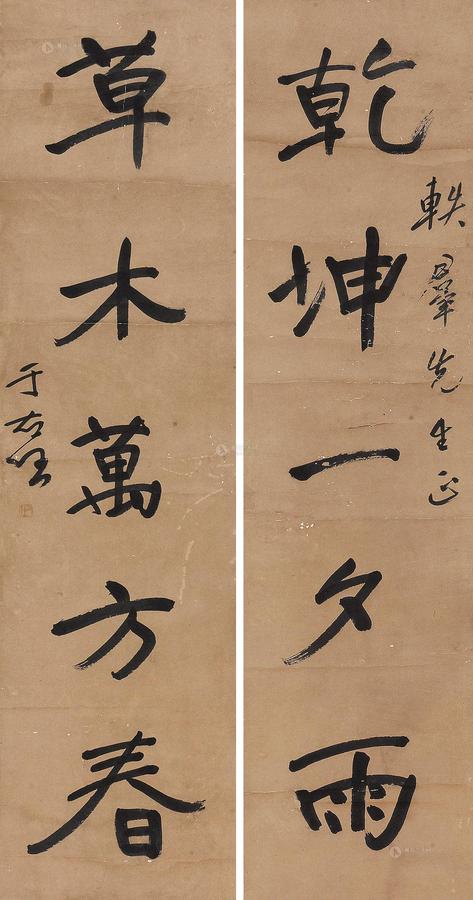 軼羣先生正
乾坤一夕雨
草木萬方春
于右任